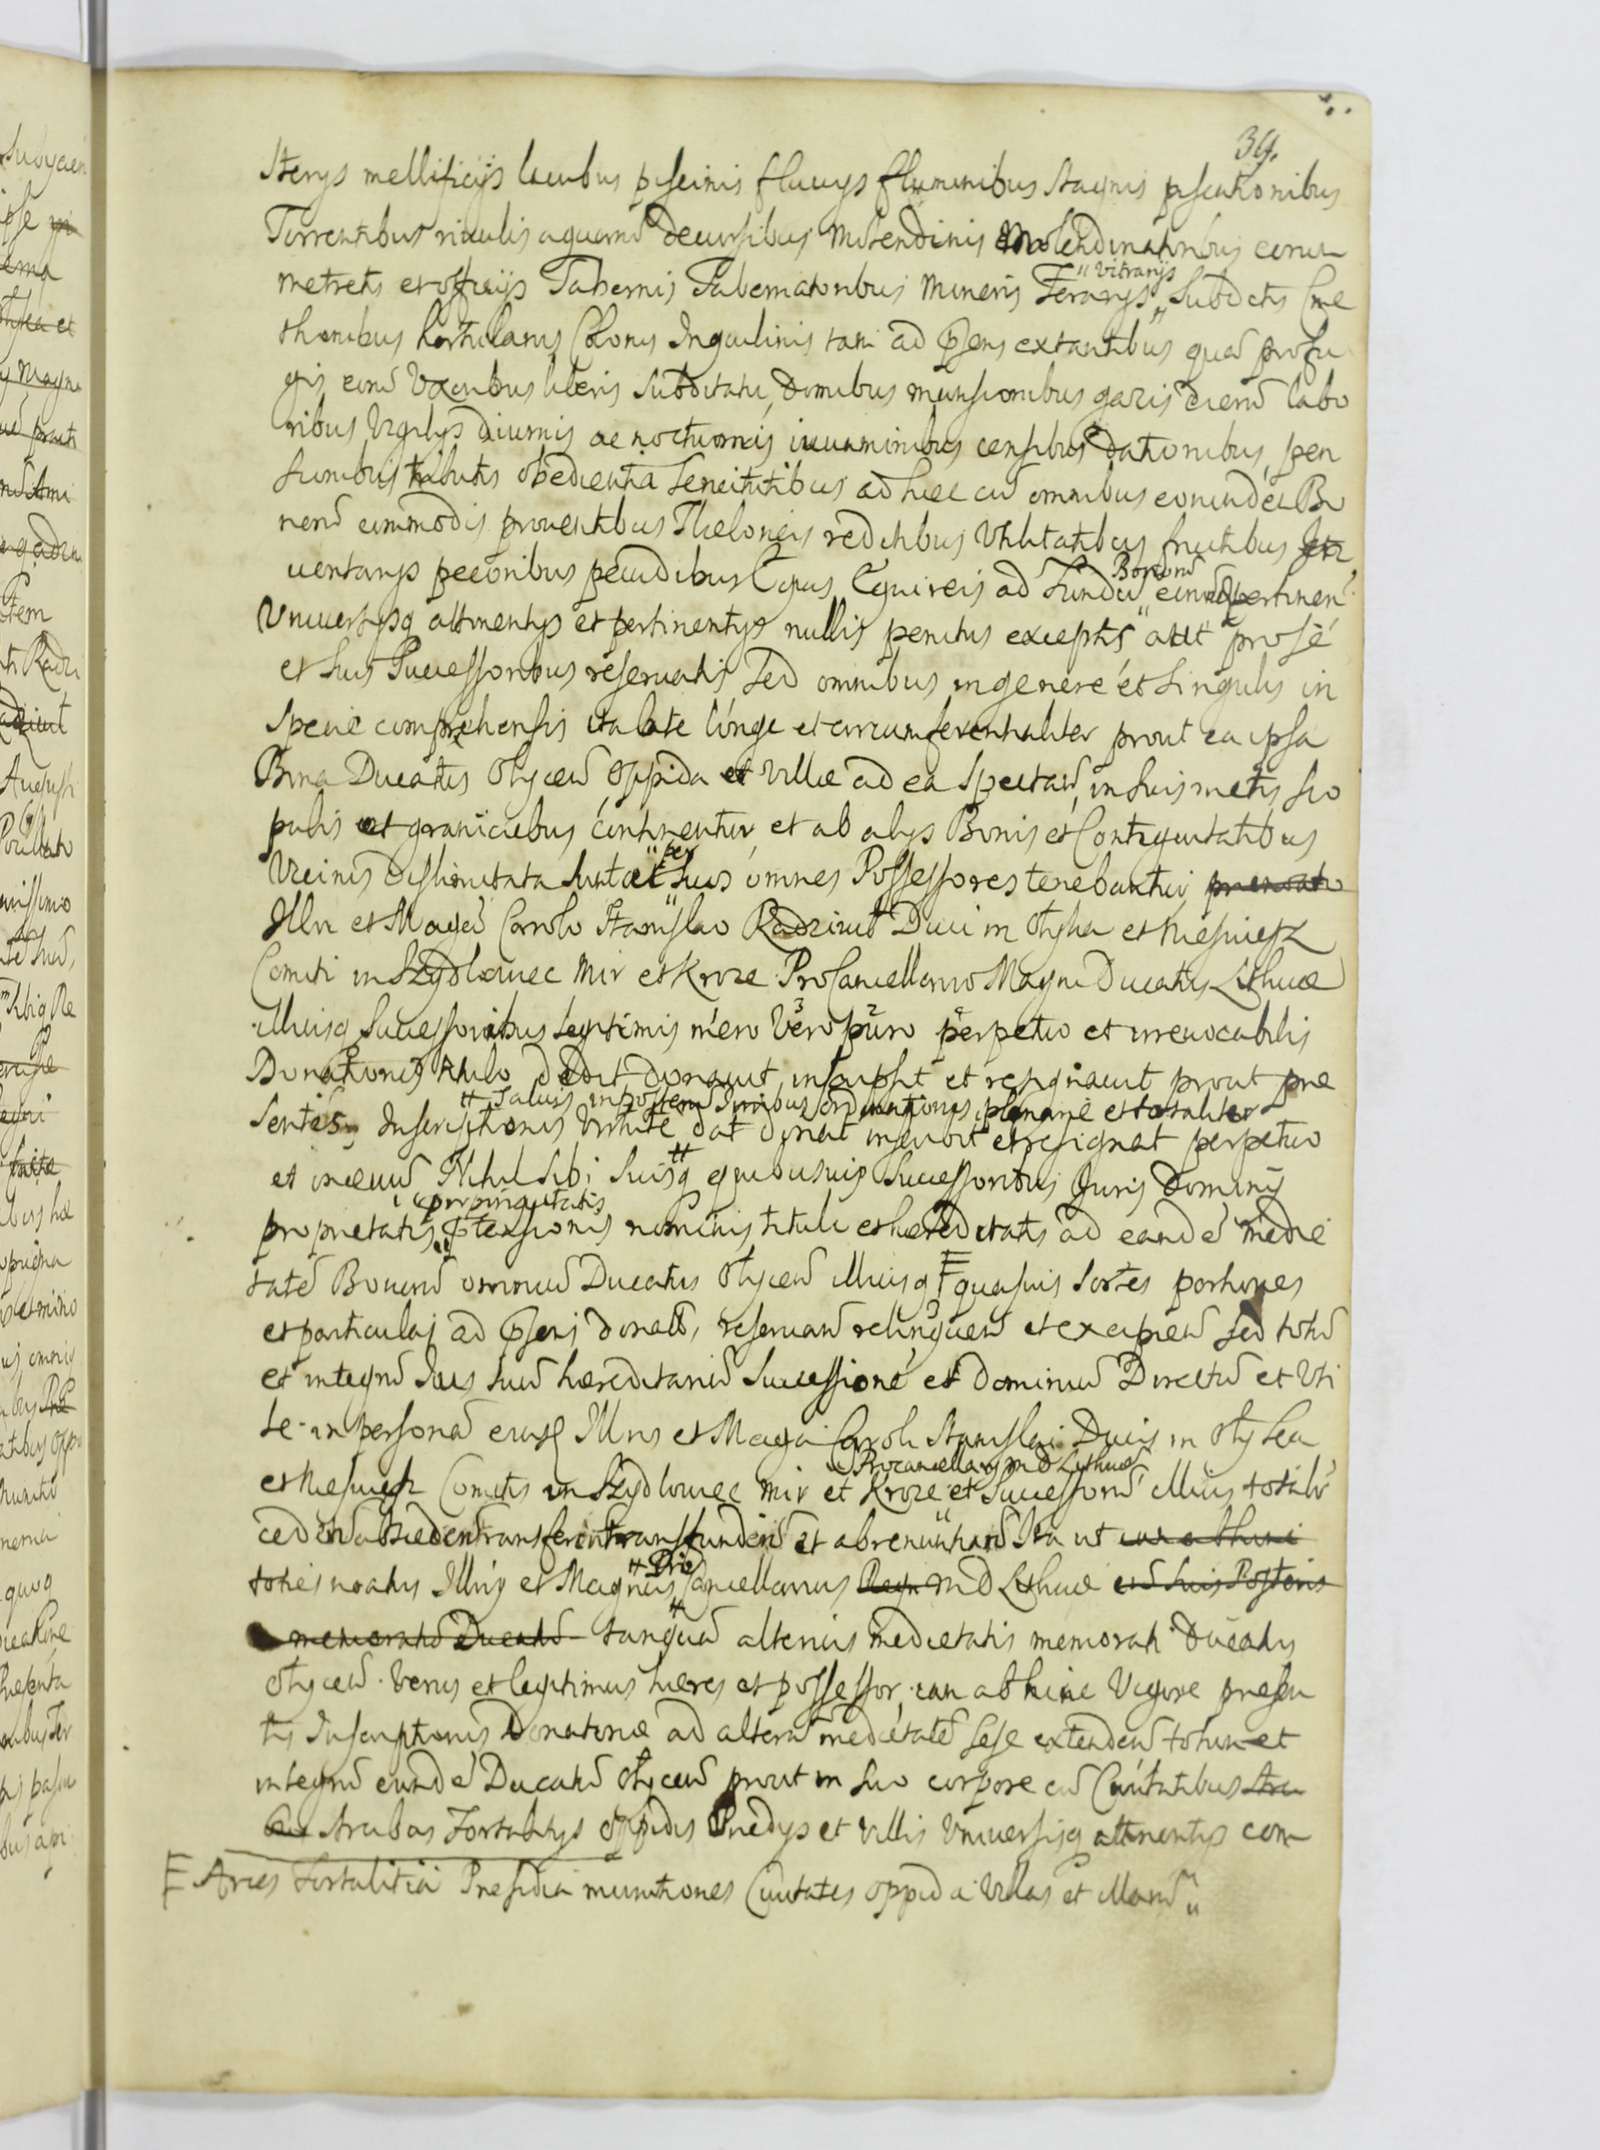 39.
sterys mellificijs lacubus piscinis fluvys fluminibus stagnis piscationibus
Torrentibus rivulis aquarum decursibus Molendinis Molendinatoribus eorum
metretis et officijs Tabernis Tabernatoribus Mineris Ferarys "vitrarijs" Subditis Cme
thonibus hortulanis Colonis Inquilinis tam ad psens extantibus quam profu
gis eorum Uxoribus liberis Subditatu, Domibus mansionibus gazis dierum labo
ribus Vigilys diurnis ac nocturnis iuvaminibus censibus dationibus pen
sionibus tributis obedientia servitutibus ad haec cum omnibus eorundem Bo
norum commodis proventibus Theloneis reditibus Utilitatibus fructibus
uentarys pecoribus pecudibus Equis Equireis ad Fundum eorum Bonorum pertinen
Universisq attinentys et pertinentys nullis penitus exceptis aut pro se
et suis Successoribus reservatis sed omnibus in genere et singulis in
specie comprehensis ita late longe et circumferentialiter prout ea ipsa
Bona Ducatus Olycen Oppida et Villae ad ea spectan, in suis metis sco
pulis et graniciebus continentur et ab alys Bonis et Contiguitatibus
Vicinis dislimitata sunt et per suos omnes Possessores tenebantur
Illri et Magco Carolo Stanislao Radziwił Duci in Olyka et Nieswiesz
Comiti in Szydłowiec Mir et Kroze ProCancellario Magni Ducatus Lithuae
illiusq Successoribus legitimis mero vero puro perpetuo et irrevocabilis
Donationis titulo dedit donavit inscripsit et resignavit prout pre
sentis Inscriptionis virtute dat donat inscribit et resignat perpetuo
"Salvis in posterum Juribus ordinationis plenarie et totaliter
et in aevum Nihil sibi suisq quibusvis Successoribus Juris Dominij
proprietatis "propinquitatis" ptensionis nominis tituli et haereditatis ad eandem medie
tatem Bonorum omnium Ducatus Olycen illiusq quasvis sortes portiones
et particulas ad psens donatt, reservan relinquen et excipien sed totum
et integrum Ius suum haereditarium Successionem et dominium Directum et Uti
le in personam eiusd Illris et Magci Caroli Stanislai Ducis in Olyka
et Nieswiesz Comitis in Szydłowiec Mir et Kroze Procancellary M D Lithuae et Successorum illius totalr
ceden transferen transfunden et abrenuntian Ita ut
toties noatus Illris et Magnus ProCancellarius M D Lithuae
memoratum Ducatum tanquam alterius medietatis memorati Ducatus
Olycen verus et legitimus haeres et possessor iam ab hinc Vigore presen
tis Inscriptionis Donatoriae ad alteram medietatem sese extenden totum et
integrum eundem Ducatum Olycen prout in suo corpore cum Civitatibus
Arcibus Fortalitys Oppidis Predys et villis Universisq attinentys com
Arces Fortalitia Presidia munitiones Civitates oppida Villas et illarum